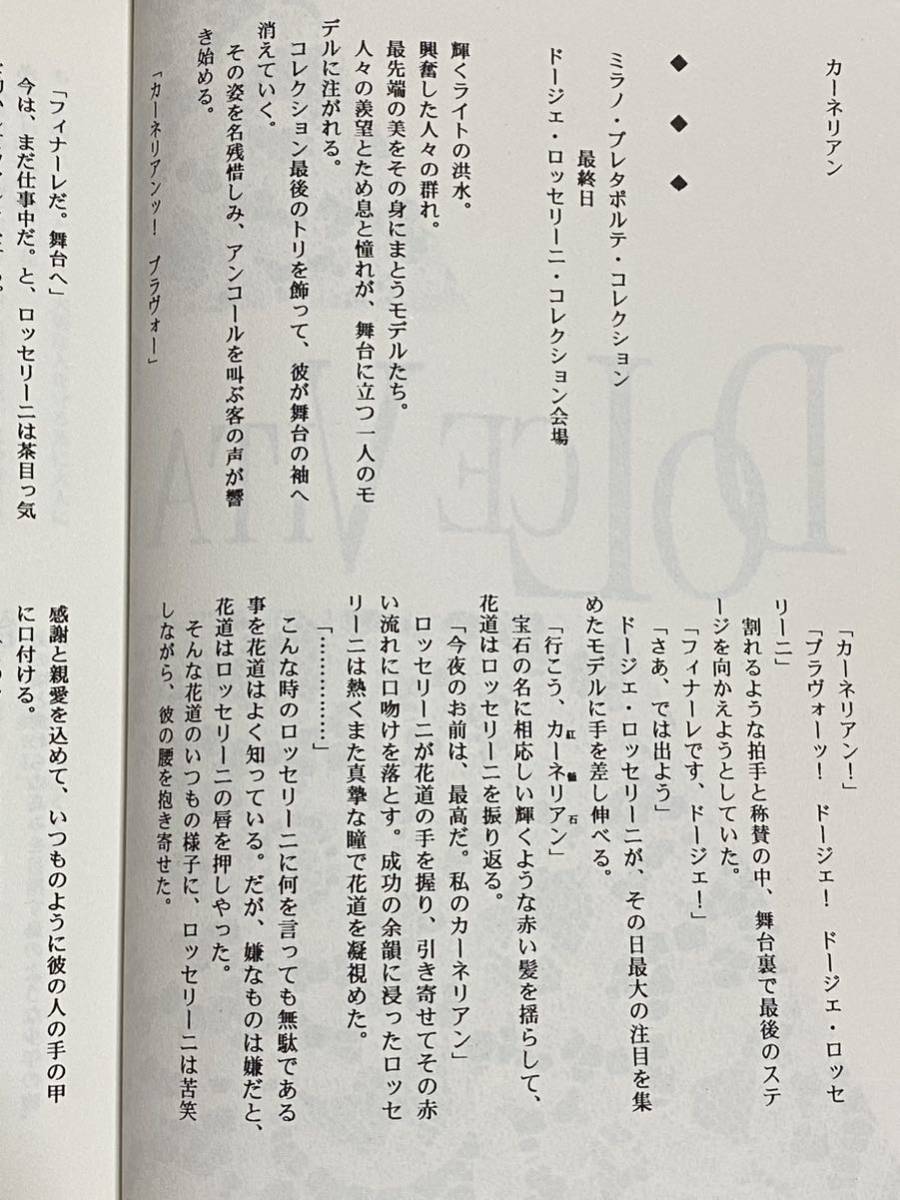 カーネリアン
◆ ◆ ◆
ミラノ・プレタポルテ・コレクション
最終日
ドージェ・ロッセリーニ・コレクション会場
輝くライトの洪水。
興奮した人々の群れ。
最先端の美をその身にまとうモデルたち。
人々の羨望とため息と憧れが、舞台に立つ一人のモ
デルに注がれる。
コレクション最後のトリを飾って、彼が舞台の袖へ
消えていく。
その姿を名残惜しみ、アンコールを叫ぶ客の声が響
き始める。
「カーネリアンッ! ブラヴォー」
「カーネリアン!」
「ブラヴォーッ! ドージェ! ドージェ・ロッセ
リーニ」
割れるような拍手と称賛の中、舞台裏で最後のステ
ージを向かえようとしていた。
「フィナーレです、ドージェ!」
「さあ、では出よう」
ドージェ・ロッセリーニが、その日最大の注目を集
めたモデルに手を差し伸べる。
「行こう、カーネリアン」
紅髄石
宝石の名に相応しい輝くような赤い髪を揺らして、
花道はロッセリーニを振り返る。
「今夜のお前は、最高だ。私のカーネリアン」
ロッセリーニが花道の手を握り、引き寄せてその赤
い流れに口吻けを落とす。成功の余韻に浸ったロッセ
リーニは熱くまた真摯な瞳で花道を凝視めた。
「……………」
こんな時のロッセリーニに何を言っても無駄である
事を花道はよく知っている。だが、嫌なものは嫌だと、
花道はロッセリーニの唇を押しやった。
そんな花道のいつもの様子に、ロッセリーニは苦笑
しながら、彼の腰を抱き寄せた。
「フィナーレだ。舞台へ」
今は、まだ仕事中だ。と、ロッセリーニは茶目っ気
感謝と親愛を込めて、いつものように彼の人の手の甲
に口付ける。
DOLCE VITA